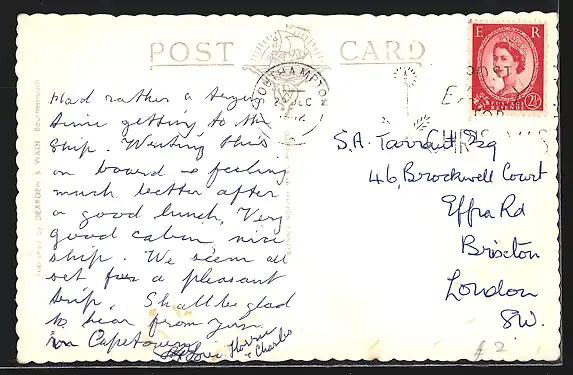 POST CARD
Had rather a
time getting to the
Ship. Writing this
on board & feeling
much better after
a good lunch, Very
good cabin, nice
ship. We seem all
set for a pleasant
trip. Shall be glad
to hear from you
in Capetown.
Horrie
& Charles
Published by DEARDEN & WADE Bournemouth
SOUTHAMPTON
DEC
POST
E
FOR
CHRISTMAS
E R
POSTAGE REVENUE
2½D
S.A. Tarrant Esq
46, Brockwell Court
Effra Rd
Brixton
London
SW.
£2